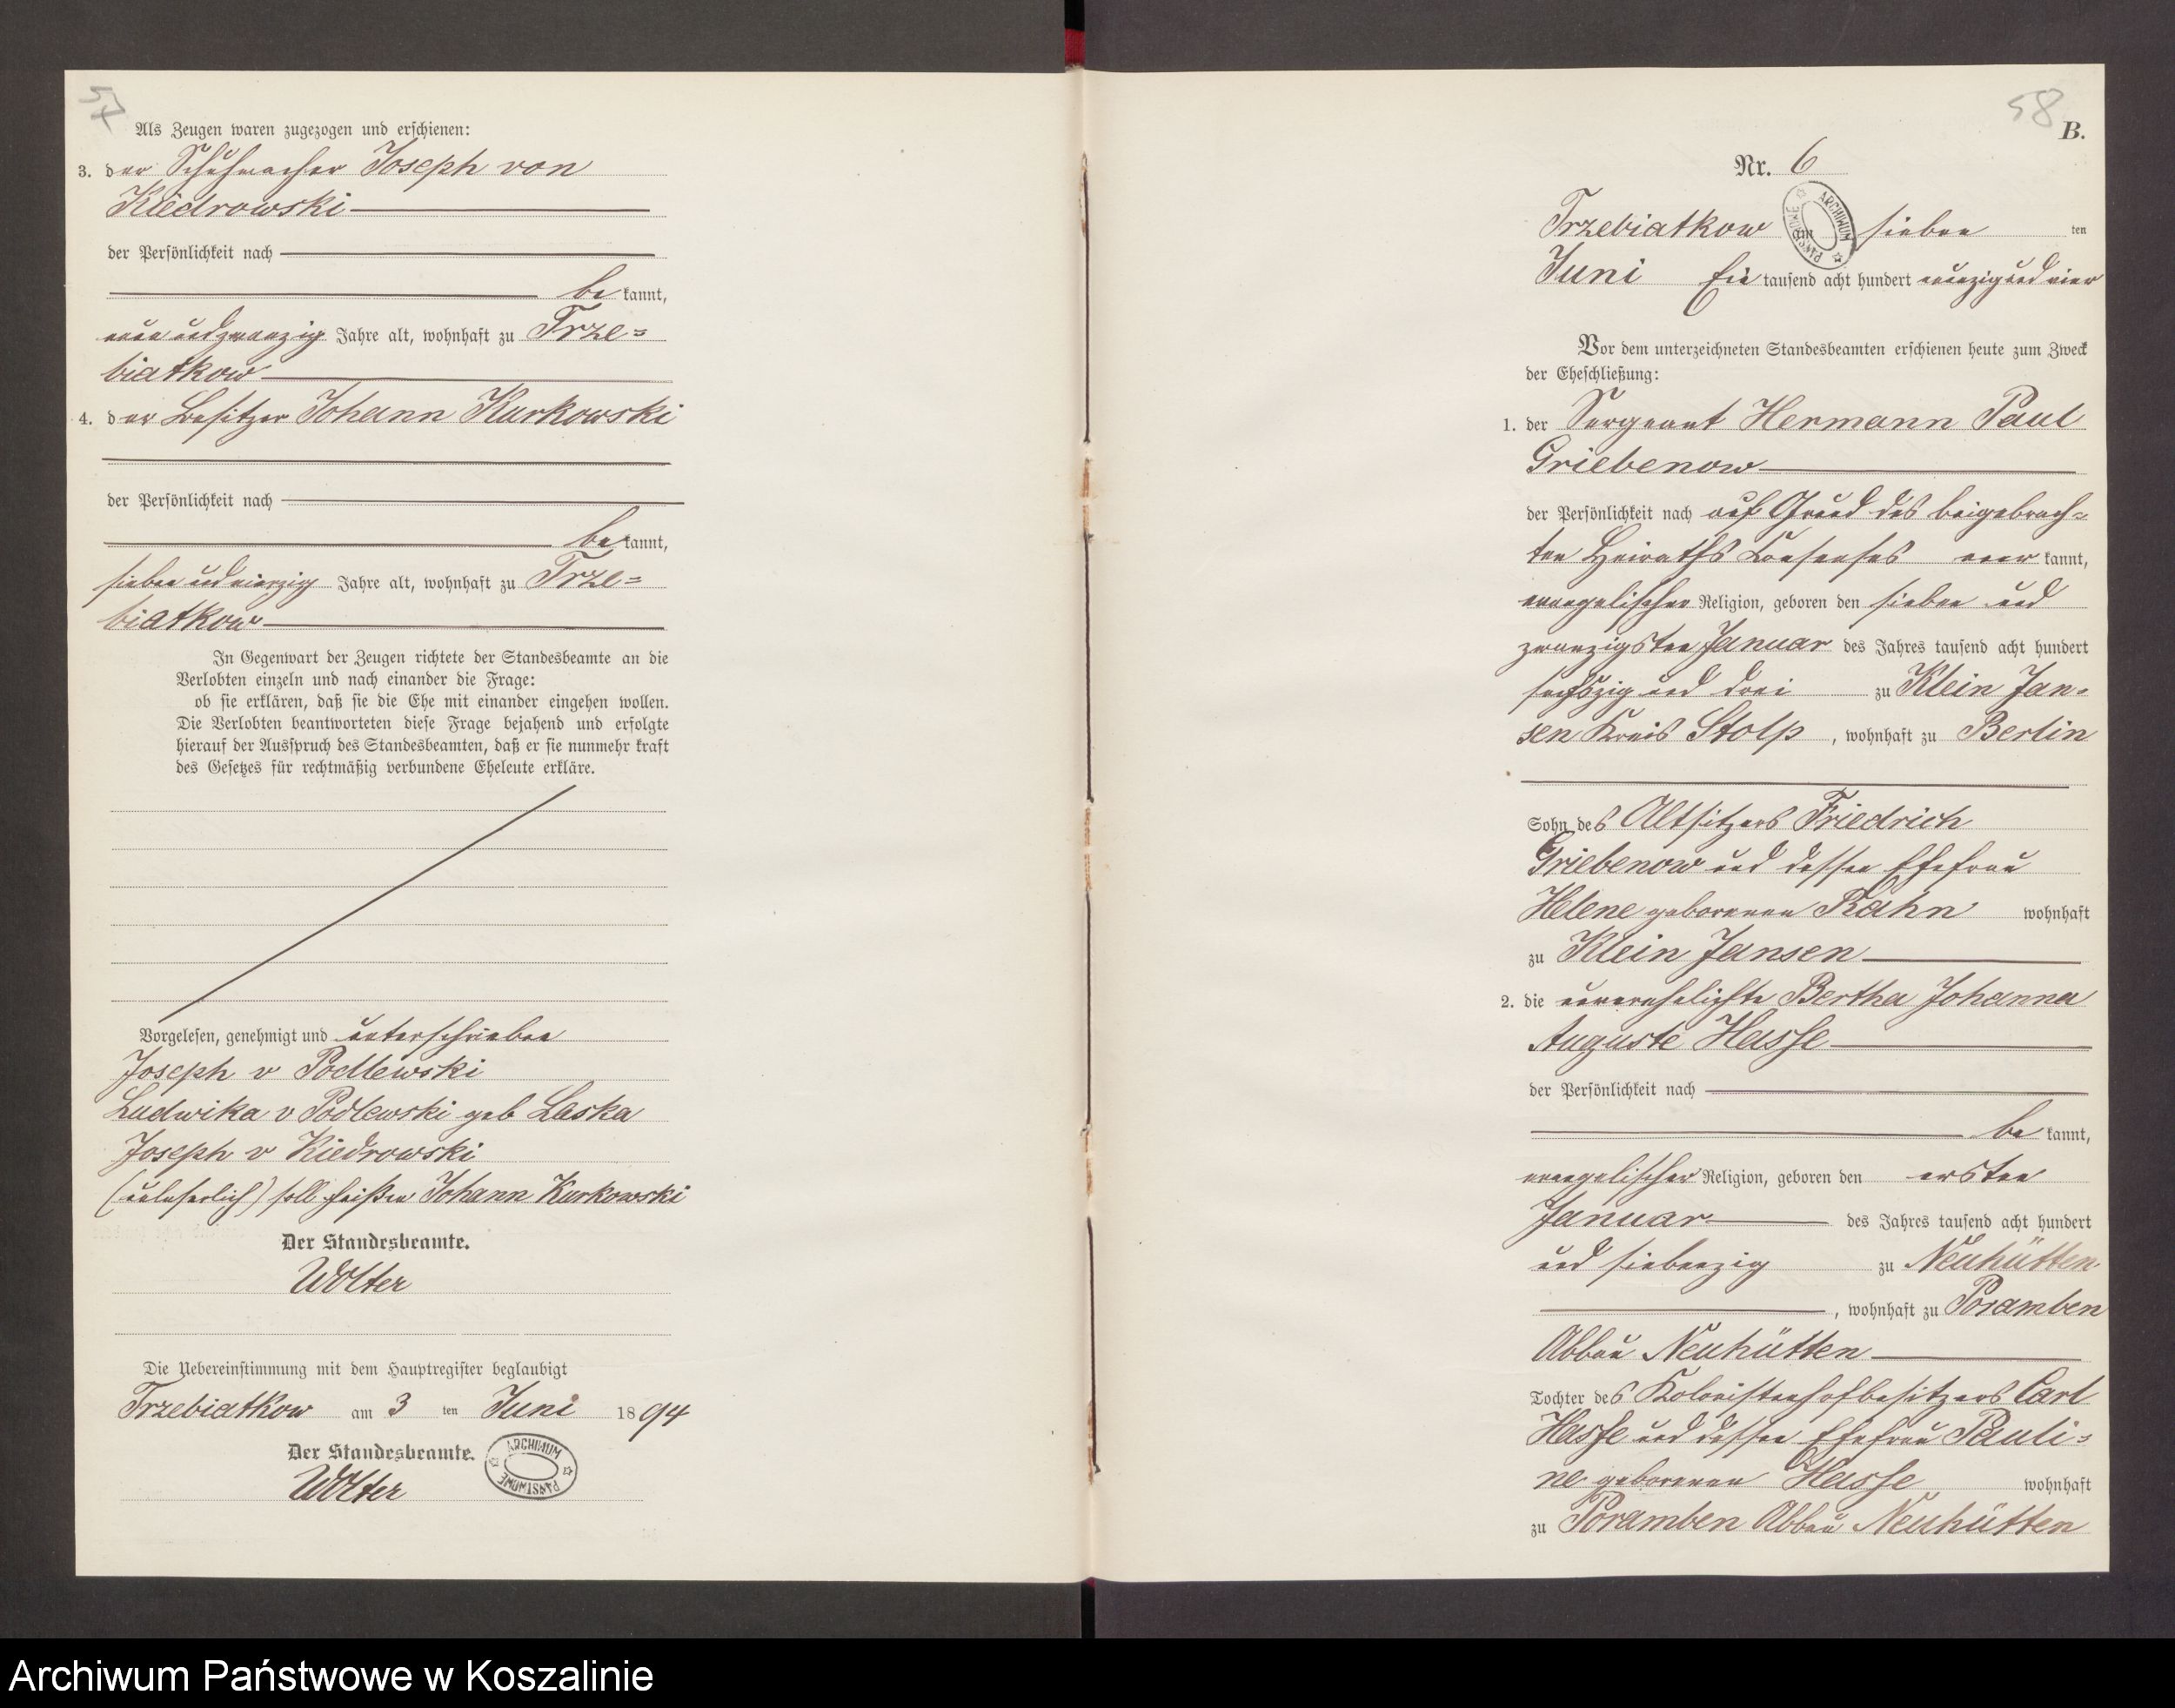 57
Als Zeugen waren zugezogen und erschienen:
3. der Schuhmacher Joseph von
Kiedrowski
der Persönlichkeit nach
be kannt,
neun und zwanzig Jahre alt, wohnhaft zu Trze=
biatkow
4. der Besitzer Johann Kurkowski
der Persönlichkeit nach
be kannt,
sieben und vierzig Jahre alt, wohnhaft zu Trze=
biatkow
In Gegenwart der Zeugen richtete der Standesbeamte an die
Verlobten einzeln und nach einander die Frage:
ob sie erklären, daß sie die Ehe mit einander eingehen wollen.
Die Verlobten beantworteten diese Frage bejahend und erfolgte
hierauf der Ausspruch des Standesbeamten, daß er sie nunmehr kraft
des Gesetzes für rechtmäßig verbundene Eheleute erkläre.
Vorgelesen, genehmigt und unterschrieben
Joseph v Podlewski
Ludwika v Podlewski geb Laska
Joseph v Kiedrowski
(unleserlich) soll heißen Johann Kurkowski
Der Standesbeamte.
Wolter
Die Uebereinstimmung mit dem Hauptregister beglaubigt
Trzebiatkow am 3 ten Juni 1894
Der Standesbeamte.
Wolter
ARCHIWUM PAŃSTWOWE
58
B.
Nr. 6
Trzebiatkow am sieben ten
ARCHIWUM PAŃSTWOWE
Juni Ein tausend acht hundert neunzig und vier
Vor dem unterzeichneten Standesbeamten erschienen heute zum Zweck
der Eheschließung:
1. der Sergeant Hermann Paul
Griebenow
der Persönlichkeit nach auf Grund des beigebrach=
ten Heiraths Consenses aner kannt,
evangelischer Religion, geboren den sieben und
zwanzigsten Januar des Jahres tausend acht hundert
sechszig und drei zu Klein Jan=
sen Kreis Stolp, wohnhaft zu Berlin
Sohn des Altsitzers Friedrich
Griebenow und dessen Ehefrau
Helene geborenen Rahn wohnhaft
zu Klein Jansen
2. die unverehelichte Bertha Johanna
Auguste Hasse
der Persönlichkeit nach
be kannt,
evangelischer Religion, geboren den ersten
Januar des Jahres tausend acht hundert
und siebenzig zu Neuhütten
, wohnhaft zu Poramben
Abbau Neuhütten
Tochter des Kolonistenhofbesitzers Carl
Hasse und dessen Ehefrau Pauli=
ne geborenen Hasse wohnhaft
zu Poramben Abbau Neuhütten
Archiwum Państwowe w Koszalinie